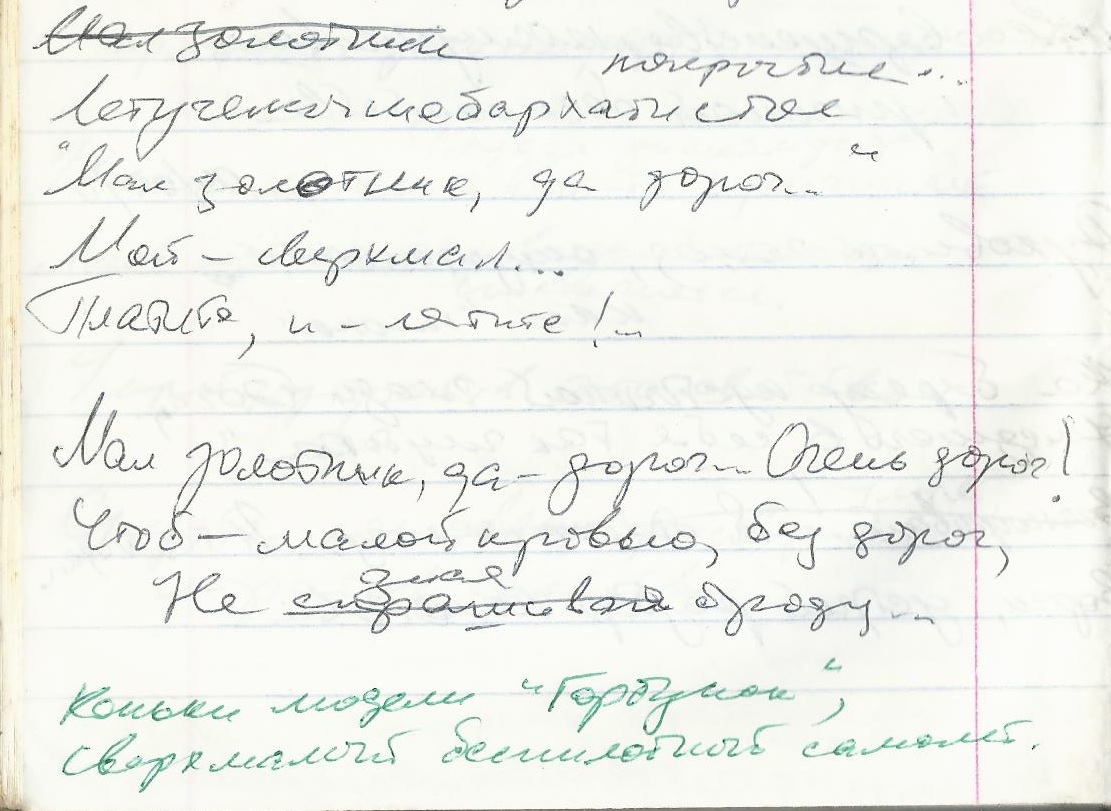 Мал золотник
покрытие...
Летучемышебархатистое
"Мал золотник, да дорог..."
Мой - сверхмал...
Платите, и - летите!..
Мал золотник, да - дорог... Очень дорог!
Чтоб - малой кровью, без дорог,
зная
Не спрашивая броду...
Коньки модели "Горбунок",
Сверхмалый беспилотный самолёт.